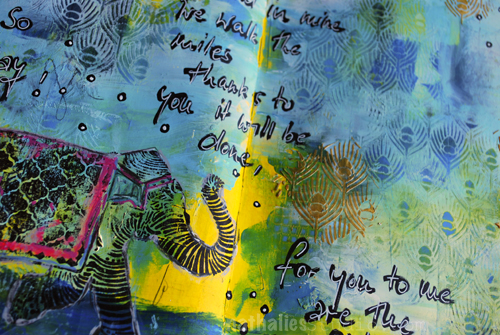 So
in mine
I've walk the
miles
thanks to
you it will be
done,
for you to me
are the